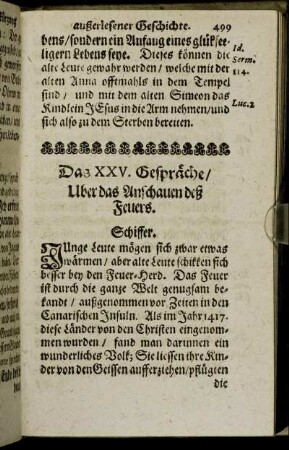 außerlesener Geschichte. 499
bens/sondern ein Anfang eines glükſee-
ligern Lebens ſeye. Dieſes können die
alte Leute gewahr werden/welche mit der
alten Anna offtmahls in dem Tempel
ſind/ und mit dem alten Simeon das
Kindlein JEſus in die Arm nehmen/und
ſich alſo zu dem Sterben bereiten.
Id.
Serm.
114.
Luc. 2
Das XXV. Geſpräche/
Uber das Anſchauen deß
Feuers.
Schiffer.
JUnge Leute mögen ſich zwar etwas
wärmen/ aber alte Leute ſchikken ſich
beſſer bey den Feuer-Herd. Das Feuer
iſt durch die ganze Welt genugſam be-
kandt/ außgenommen vor Zeiten in den
Canariſchen Inſuln. Als im Jahr 1417.
dieſe Länder von den Chriſten eingenom-
men wurden/ fand man darinnen ein
wunderliches Volk; Sie lieſſen ihre Kin-
der von den Geiſſen aufferziehen/pflügten
die